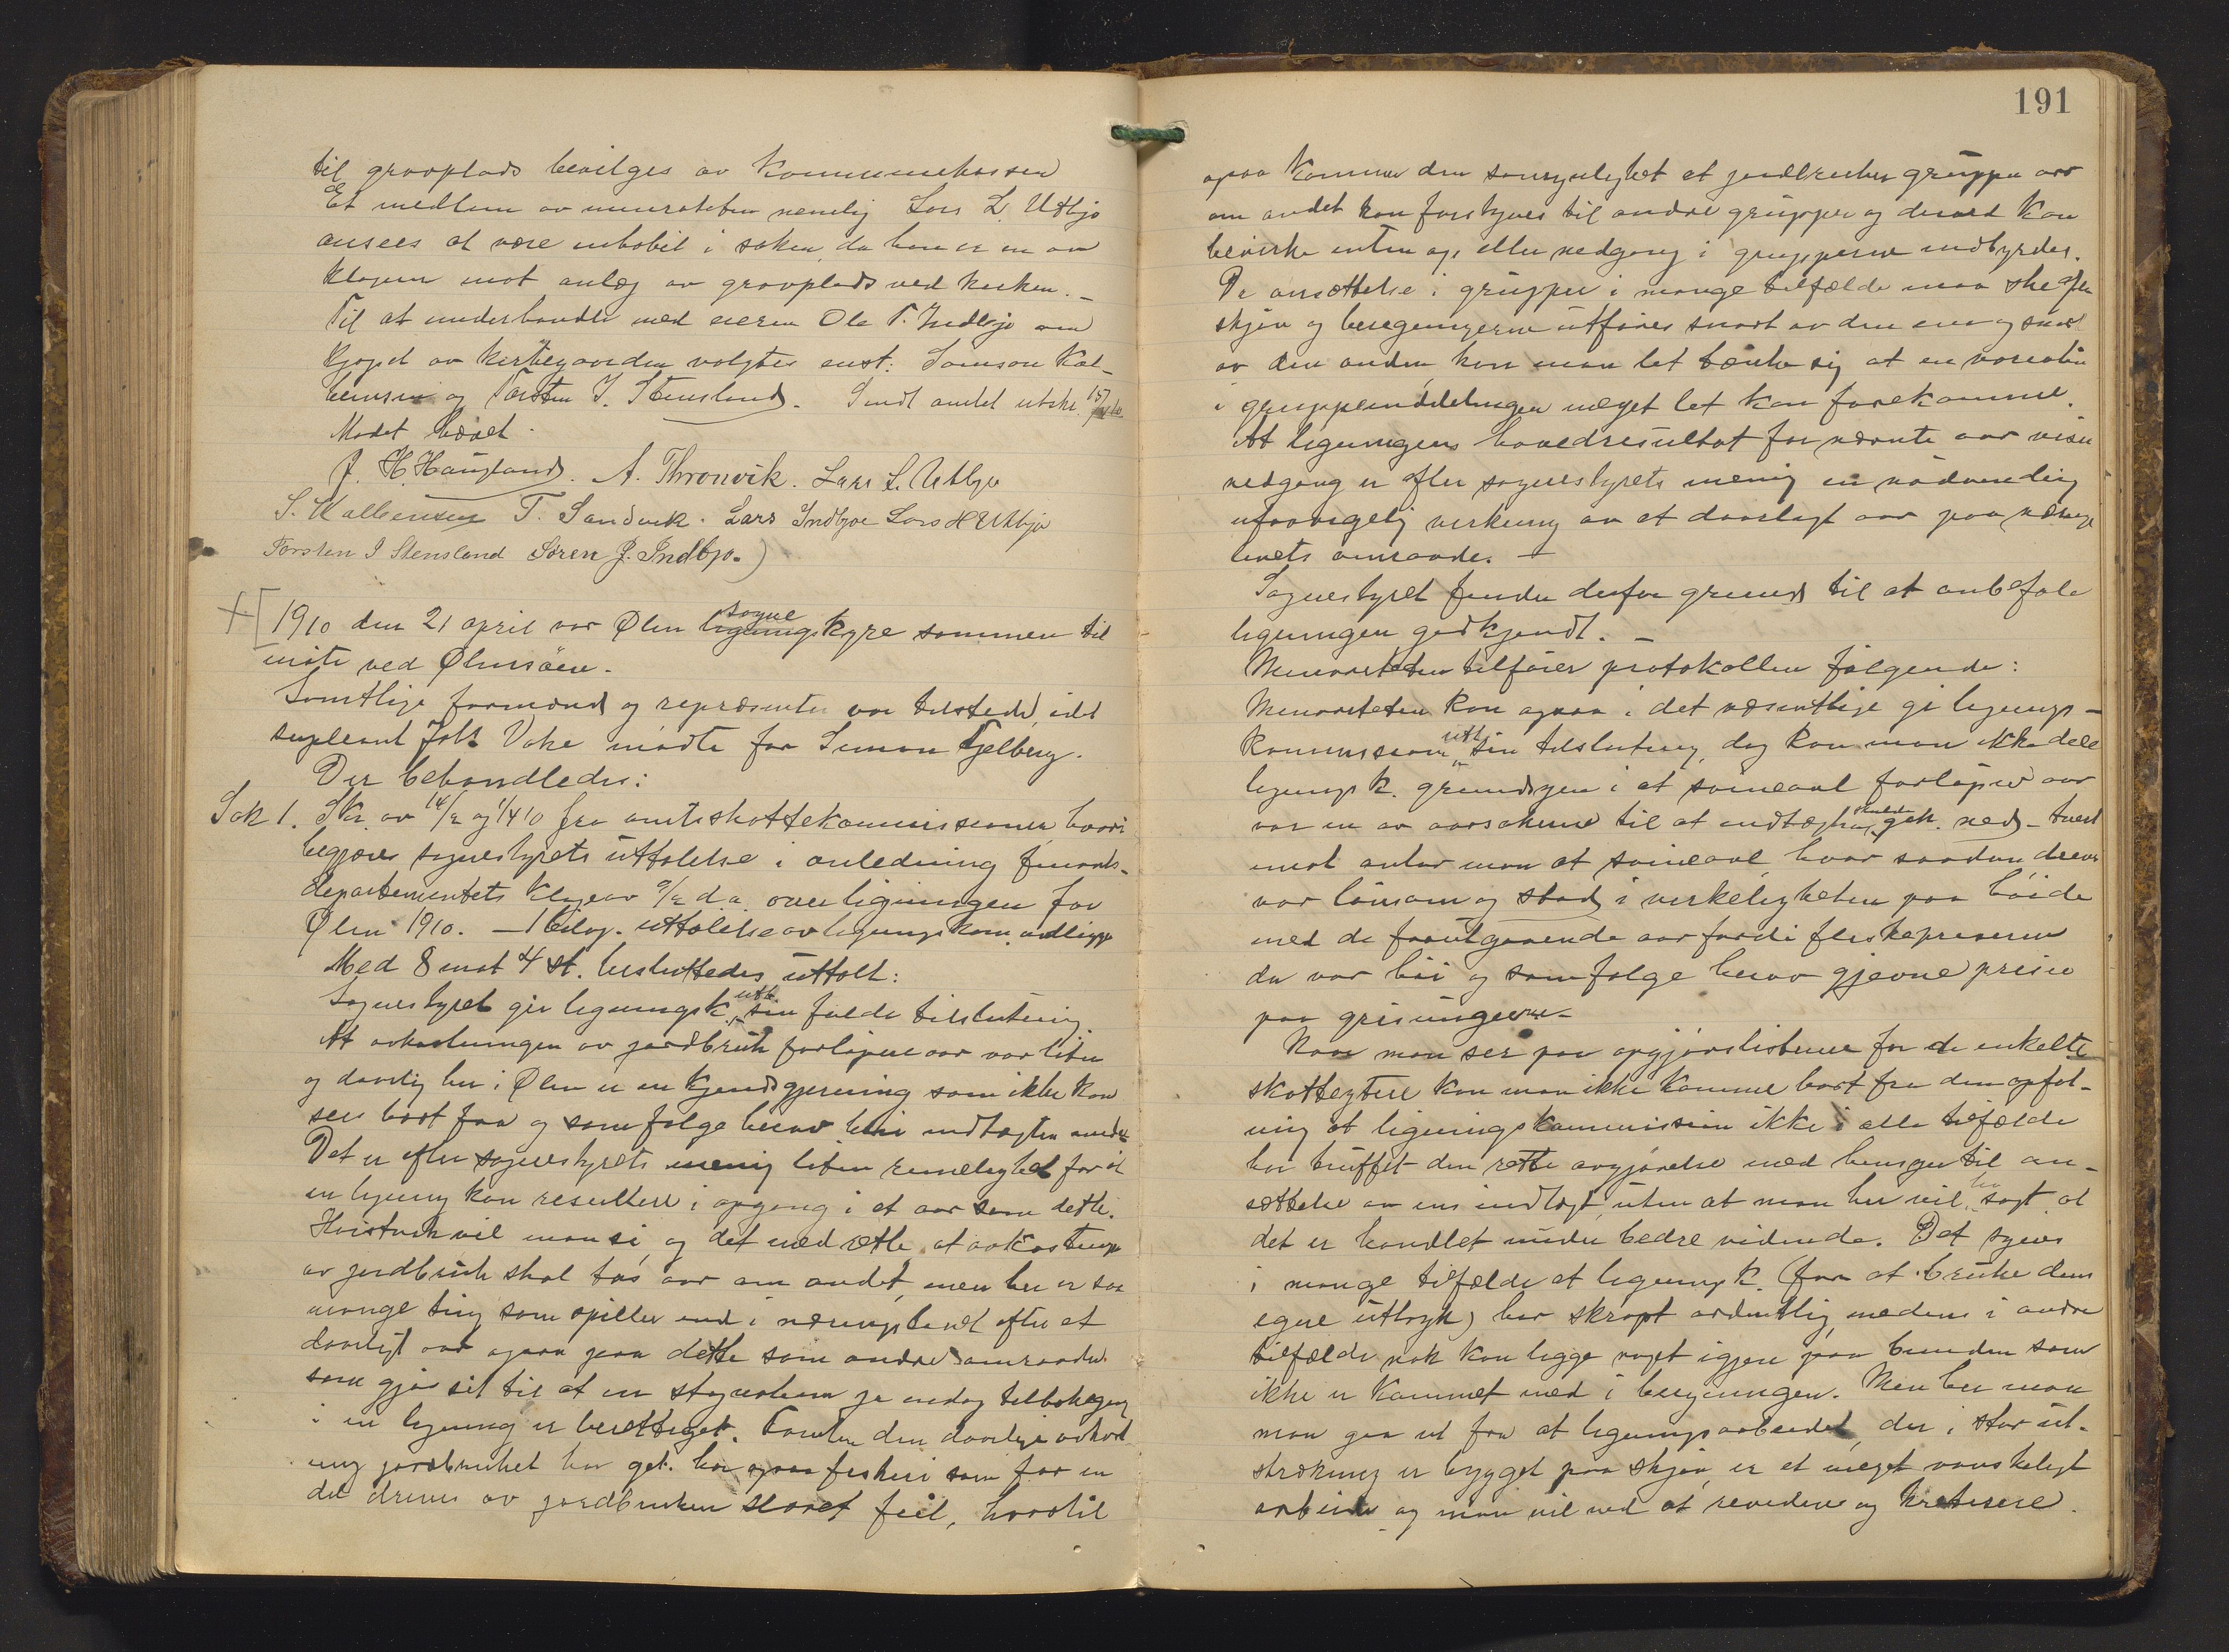 til gravplads bevilges av kommunekassen
Et medlem av minoriteten nemlig Lars L. Utbjo
ansees at være inhabil i saken, da han er en av
klagerne mot anlæg av gravplads ved kirken. –
Til at underhandle med eieren Ole T. Indbjo om
kjøpet av kirkegaarden valgtes enst: Samson Kal-
beinsen og Torsten I. Stensland. Sendt amtet utskr.
Mødet hævet.
J. H. Haugland. A. Thronvik. Lars L. Utbjo
S. Kalbeinsen T. Sandvik. Lars Indbjoe Lars H Utbjo
Torsten I Stensland Søren J. Indbjo.)
1910 den 21 april var Ølen sogne
ligningskyre sammen til
møte ved Ølensøen.
Samtlige formænd og repræsenter var tilstede, idet
supleant Joh. Vake mødte for Simon Tjelberg.
Der behandledes:
Sak 1. Skr. av 14/2 og 1/4 10 fra amtsskattekommissionen, hvori
begjæres sognestyrets uttalelse i anledning finants-
departementets klage av 9/2 d.a. over ligningen for
Ølen 1910. – 1 bilag. uttalelse av ligningskom. vedligger
Med 8 mot 4 st. besluttedes uttalt:
Sognestyret gir ligningsk. uttl. sin fulde tilslutning
At avkastningen av jordbruk forløpne aar var liten
og daarlig her i Ølen er en kjendsgjerning som ikke kan
sees bort fra og som følge herav blir indtægten mindre
Det er efter sognestyrets mening liten rimelighet for at
en ligning kan resultere i opgang i et aar som dette.
Historik vil man si, og det med rette at avkastning
av jordbruk skal tas aar om andet, men her er saa
mange ting som spiller ind i næringslivet efter et
daarligt aar ogsaa paa dette som andre omraader
som gjør sit til at en stagnation ja endog tilbakegang
i en ligning er berettiget. Foruten den daarlige avkast
ning jordbruket har git. har ogsaa fiskeri som for en
del drives av jordbruker slaaet feil, hvortil
191
ogsaa kommer den sansynlighet at jordbruker gruppe aar
om andet kan forskyves til andre grupper og derved kan
bevirke enten op, eller nedgang i grupperne indbyrdes.
Da ansættelse i grupper i mange tilfælde maa ske efter
skjøn og beregningerne utføres snart av den ene og snart
av den anden, kan man let tænke sig at en variation
i gruppeinddelingen meget let kan forekomme.
At ligningens hovedresultat for nævnte aar viser
nedgang er efter sognestyrets mening en nødvendig
ufravigelig virkning av et daarligt aar paa nærings
livets omraade. –
Sognestyret finder derfor grund til at anbefale
ligningen godkjendt. –
Minoriteten tilfører protokollen følgende:
Minoriteten kan ogsaa i det væsentlige gi lignings-
kommissionens uttl. sin tilslutning, dog kan man ikke dele
lignings k. grundsyn i at svineavl forløpne aar
var en av aarsakerne til at indtægten skulde gik. ned. – tvert
imot antar man at svineavl, hvor saadan dreves
var lønsom og stod i virkeligheten paa høide
med de forutgaaende aar fordi fleskepriserne
da var høi og som følge herav gjævne priser
paa grisungerne –
Naar man ser paa opgjørslisterne for de enkelte
skatteytere kan man ikke komme bort fra den opfat-
ning at ligningskommission ikke i alle tilfælde
har truffet den rette avgjørelse med hensyn til an-
sættelse av ens indtægt, uten at man her vil ha sagt at
det er handlet under bedre vidende. Det synes
i mange tilfælde at ligningsk. (for at bruke dens
egne uttryk) har skrapt ordentlig medens i andre
tilfælde nok kan ligge noget igjen paa bunden som
ikke er kommet med i beregningen. Men her maa
man gaa ut fra at ligningsarbeidet, der i stor ut-
strækning er bygget paa skjøn er et meget vanskeligt
arbeide og man vil ved at revidere og kritisere